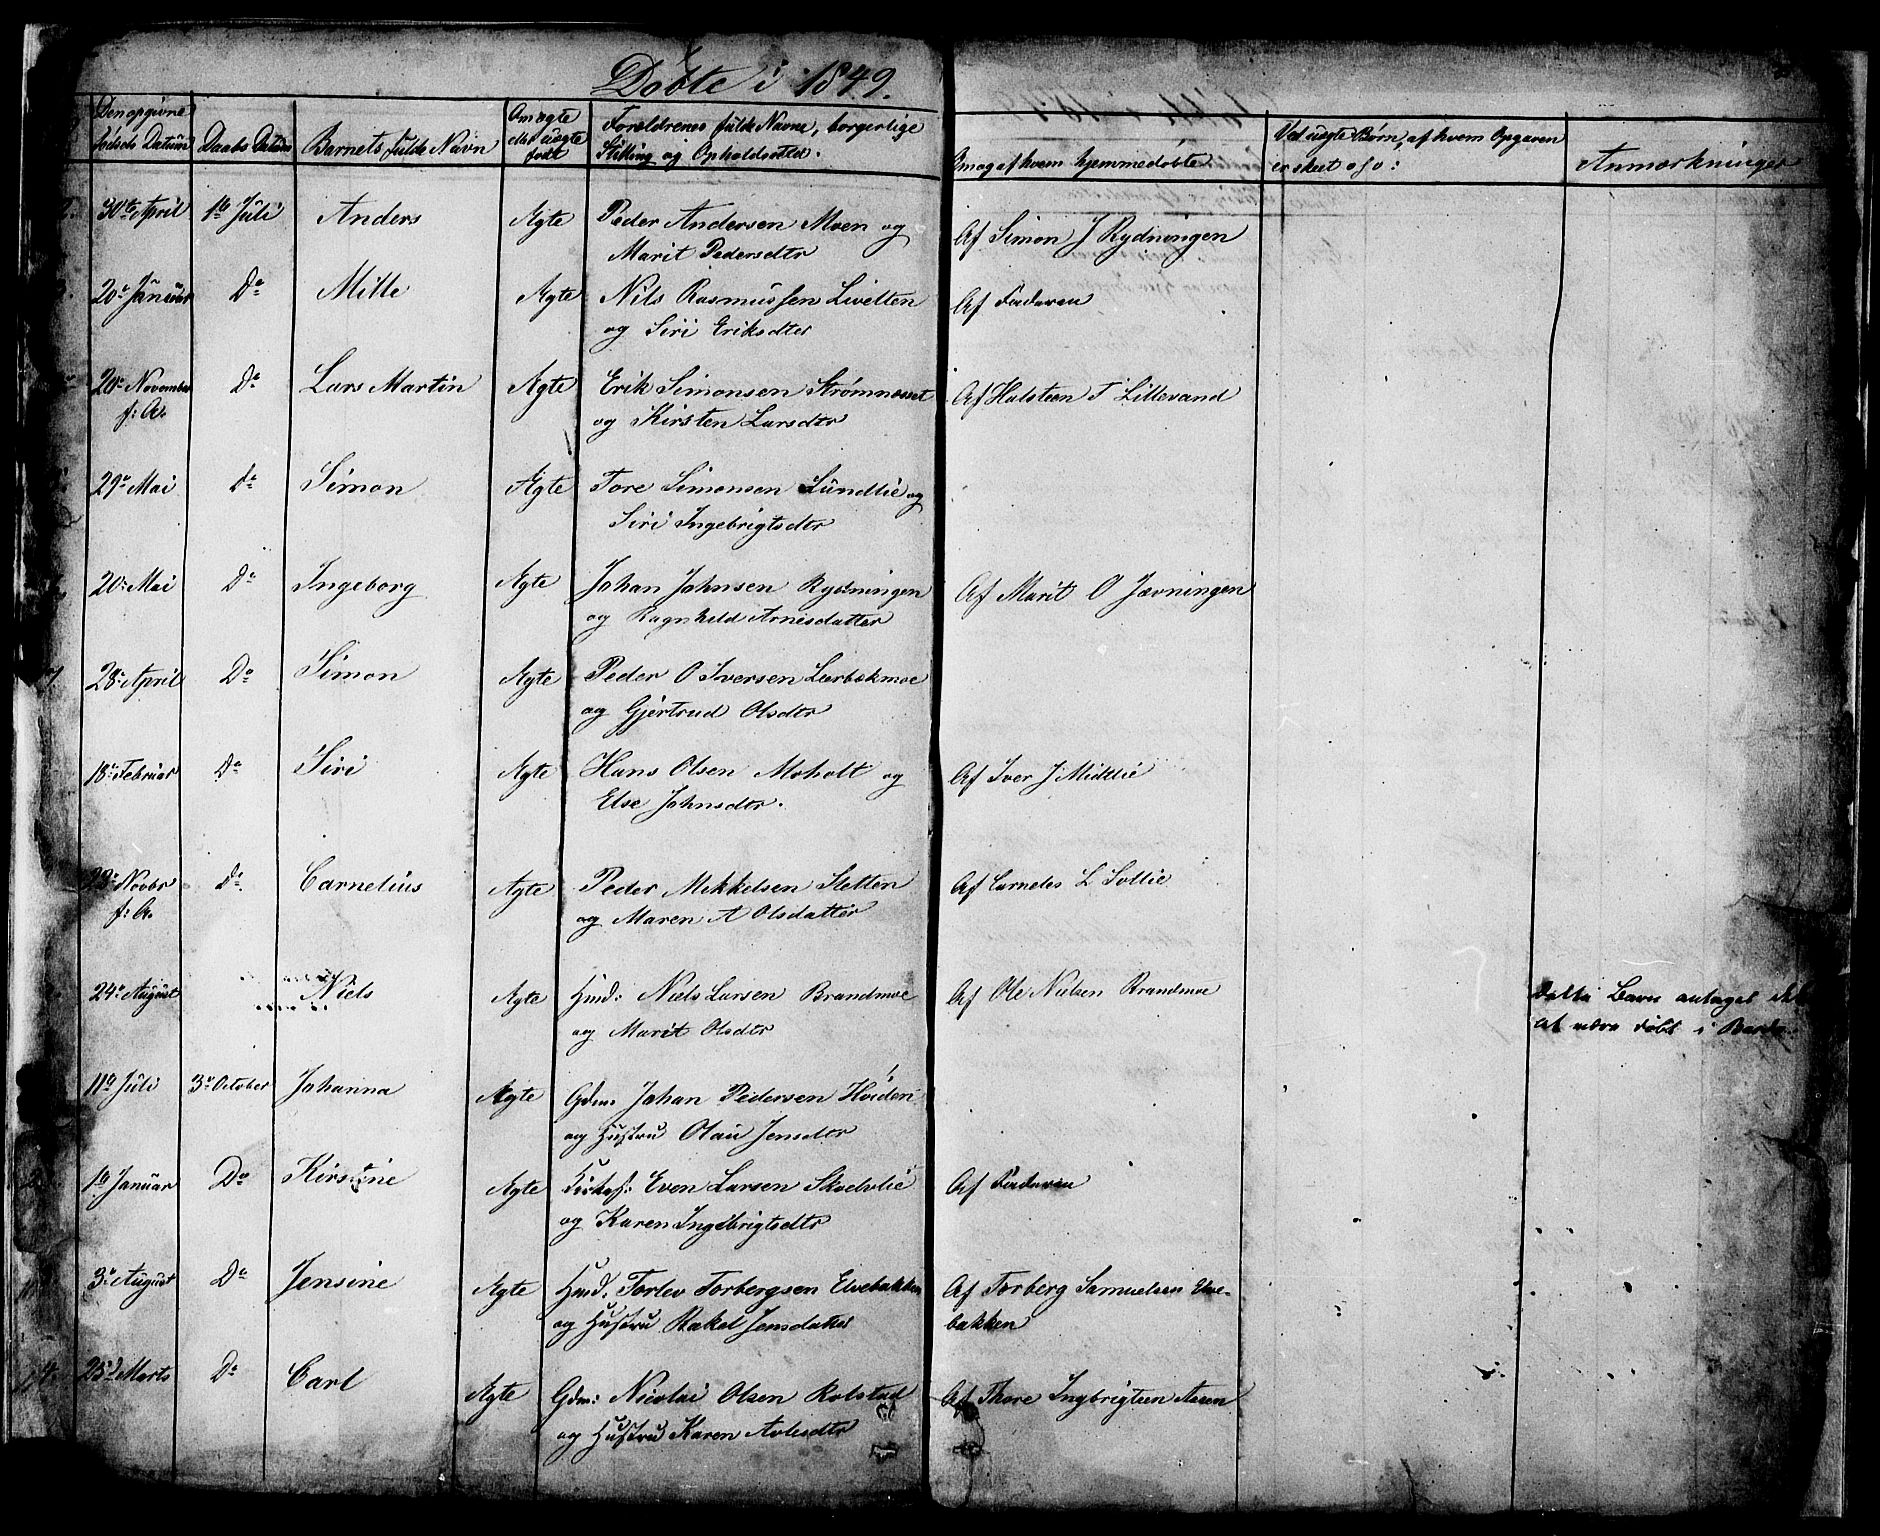 Døbte i 1849.
Den opgivne
Fødsels Datum
Daabs Datum
Barnets fulde Navn
Om ægte
eller uægte
født
Forældrenes fulde Navne, borgerlige
Stilling og Opholdssted.
Om og af hvem hjemmedøbte
Ved uægte Børn, af hvem Opgaven
er skeet o s v:
Anmærkninger
30te April 1te Juli Anders Ægte Peder Andersen Moen og Af Simon J Rydningen
Marit Pedersdtr
20de Januar Do Mille Ægte Nils Rasmussen Livelten Af Faderen
og Siri Eriksdter
20de November Do Lars Martin Ægte Erik Simonsen Strømnesset Af Halsteen T Lillevand
f: A. og Kirsten Larsdtr
29de Mai Do Simon Ægte Tore Simonsen Lundlie og
Siri Ingebrigtsdtr
20de Mai Do Ingeborg Ægte Johan Johnsen Rydningen Af Marit O Jævningen
og Ragnhild Arnesdatter
7. 28de April Do Simon Ægte Peder O Iversen Lærbekmoe
og Gjertrud Olsdtr
18de Februar Do Siri Ægte Hans Olsen Moholt og Af Iver J Midtlie
Else Johnsdtr.
Novbr Do Carnelius Ægte Peder Mikkelsen Sletten Af Carneles L Sollie
f: A. og Maren A Olsdatter
24de August Niels Ægte Hmd: Niels Larsen Brandmoe Af Ole Nielsen Brandmoe Dette Barn antages ikke
og Marit Olsdtr at være døbt i Bardo.
11te Juli 3de October Johanna Ægte Gdm. Johan Pedersen Hoiden
og Hustru Olau Jensdtr
1te Januar Do Kirstine Ægte Even Larsen Skoelvlie Af Faderen
og Karen Ingebrigtsdtr
3de August Do Jensine Ægte Hmd. Torlev Torbergsen Elvebakken Af Torberg Samuelsen Elve-
og Hustru Rakel Jensdatter bakken
14. 25de Marts Do Carl Ægte Gdm: Nicolai Olsen Rolstad Af Thore Ingbrigtsen Aasen
og Hustru Karen Avlesdtr